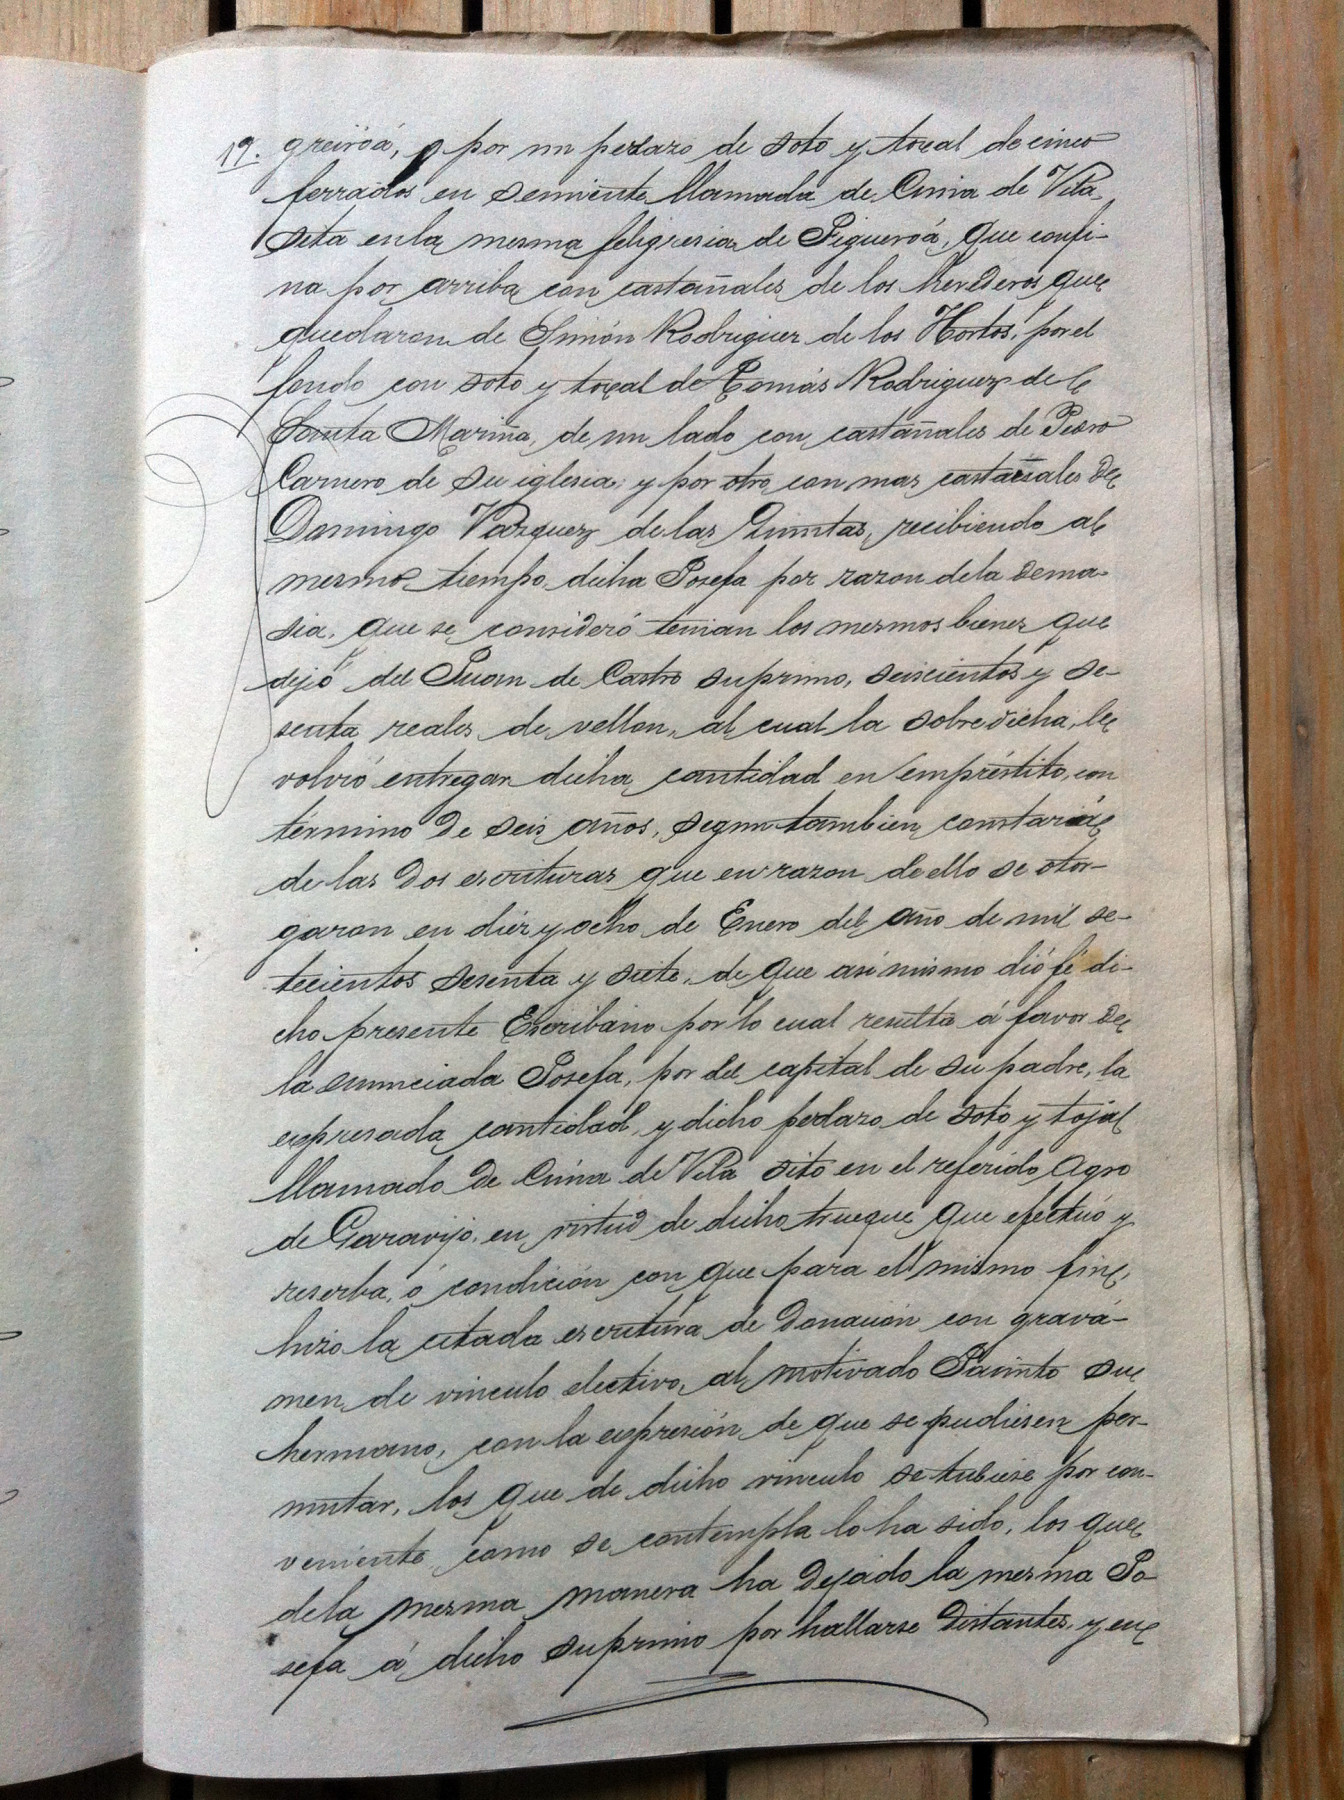 19. greiróá, y por un pedazo de soto y toxal de cinco
ferrados en semiente llamada de Cima de Vila
seta en la mesma feligresia de Figueroá, que confi-
na por arriba con castañales de los herederos que
quedaron de Simón Rodriguez de los Hortos, por el
fondo con soto y toxal de Tomás Rodriguez de
Santa Mariña, de un lado con castañales de Pedro
Carnero de su iglesia y por otro con mas castañales de
Domingo Vazquez de las Quintas, recibiendo al
mesmo tiempo dicha Josefa por razon dela dema-
sia, que se consideró tenian los mesmos bienes que
dejó del Juan de Castro su primo, seiscientos y se-
senta reales de vellon, al cual la sobredicha, le
volvió entregar dicha cantidad en empréstito, con
término de seis años, segun tambien constará
de las dos escrituras que en razon de ello se otor-
garon en diez y ocho de Enero del año de mil se-
tecientos sesenta y siete, de que asi mismo dió fé di-
cho presente Escribano por lo cual resulta á favor de
la enunciada Josefa, por del capital de su padre, la
expresada cantidad, y dicho pedazo de soto y tojal
llamado de Cima de Vila sito en el referido Agro
de Garavijo, en virtud de dicho trueque que efectuó y
reserba, ó condición con que para el mismo fin,
hizo la citada escritura de donación con gravá-
men de vinculo electivo, al motivado Jacinto su
hermano, con la expresión de que se pudiesen per-
mutar, los que de dicho vinculo se tubiese por con-
veniente como se contempla lo ha sido, los que
dela mesma manera ha dejado la mesma Jo-
sefa á dicho su primo por hallarse distantes, y en